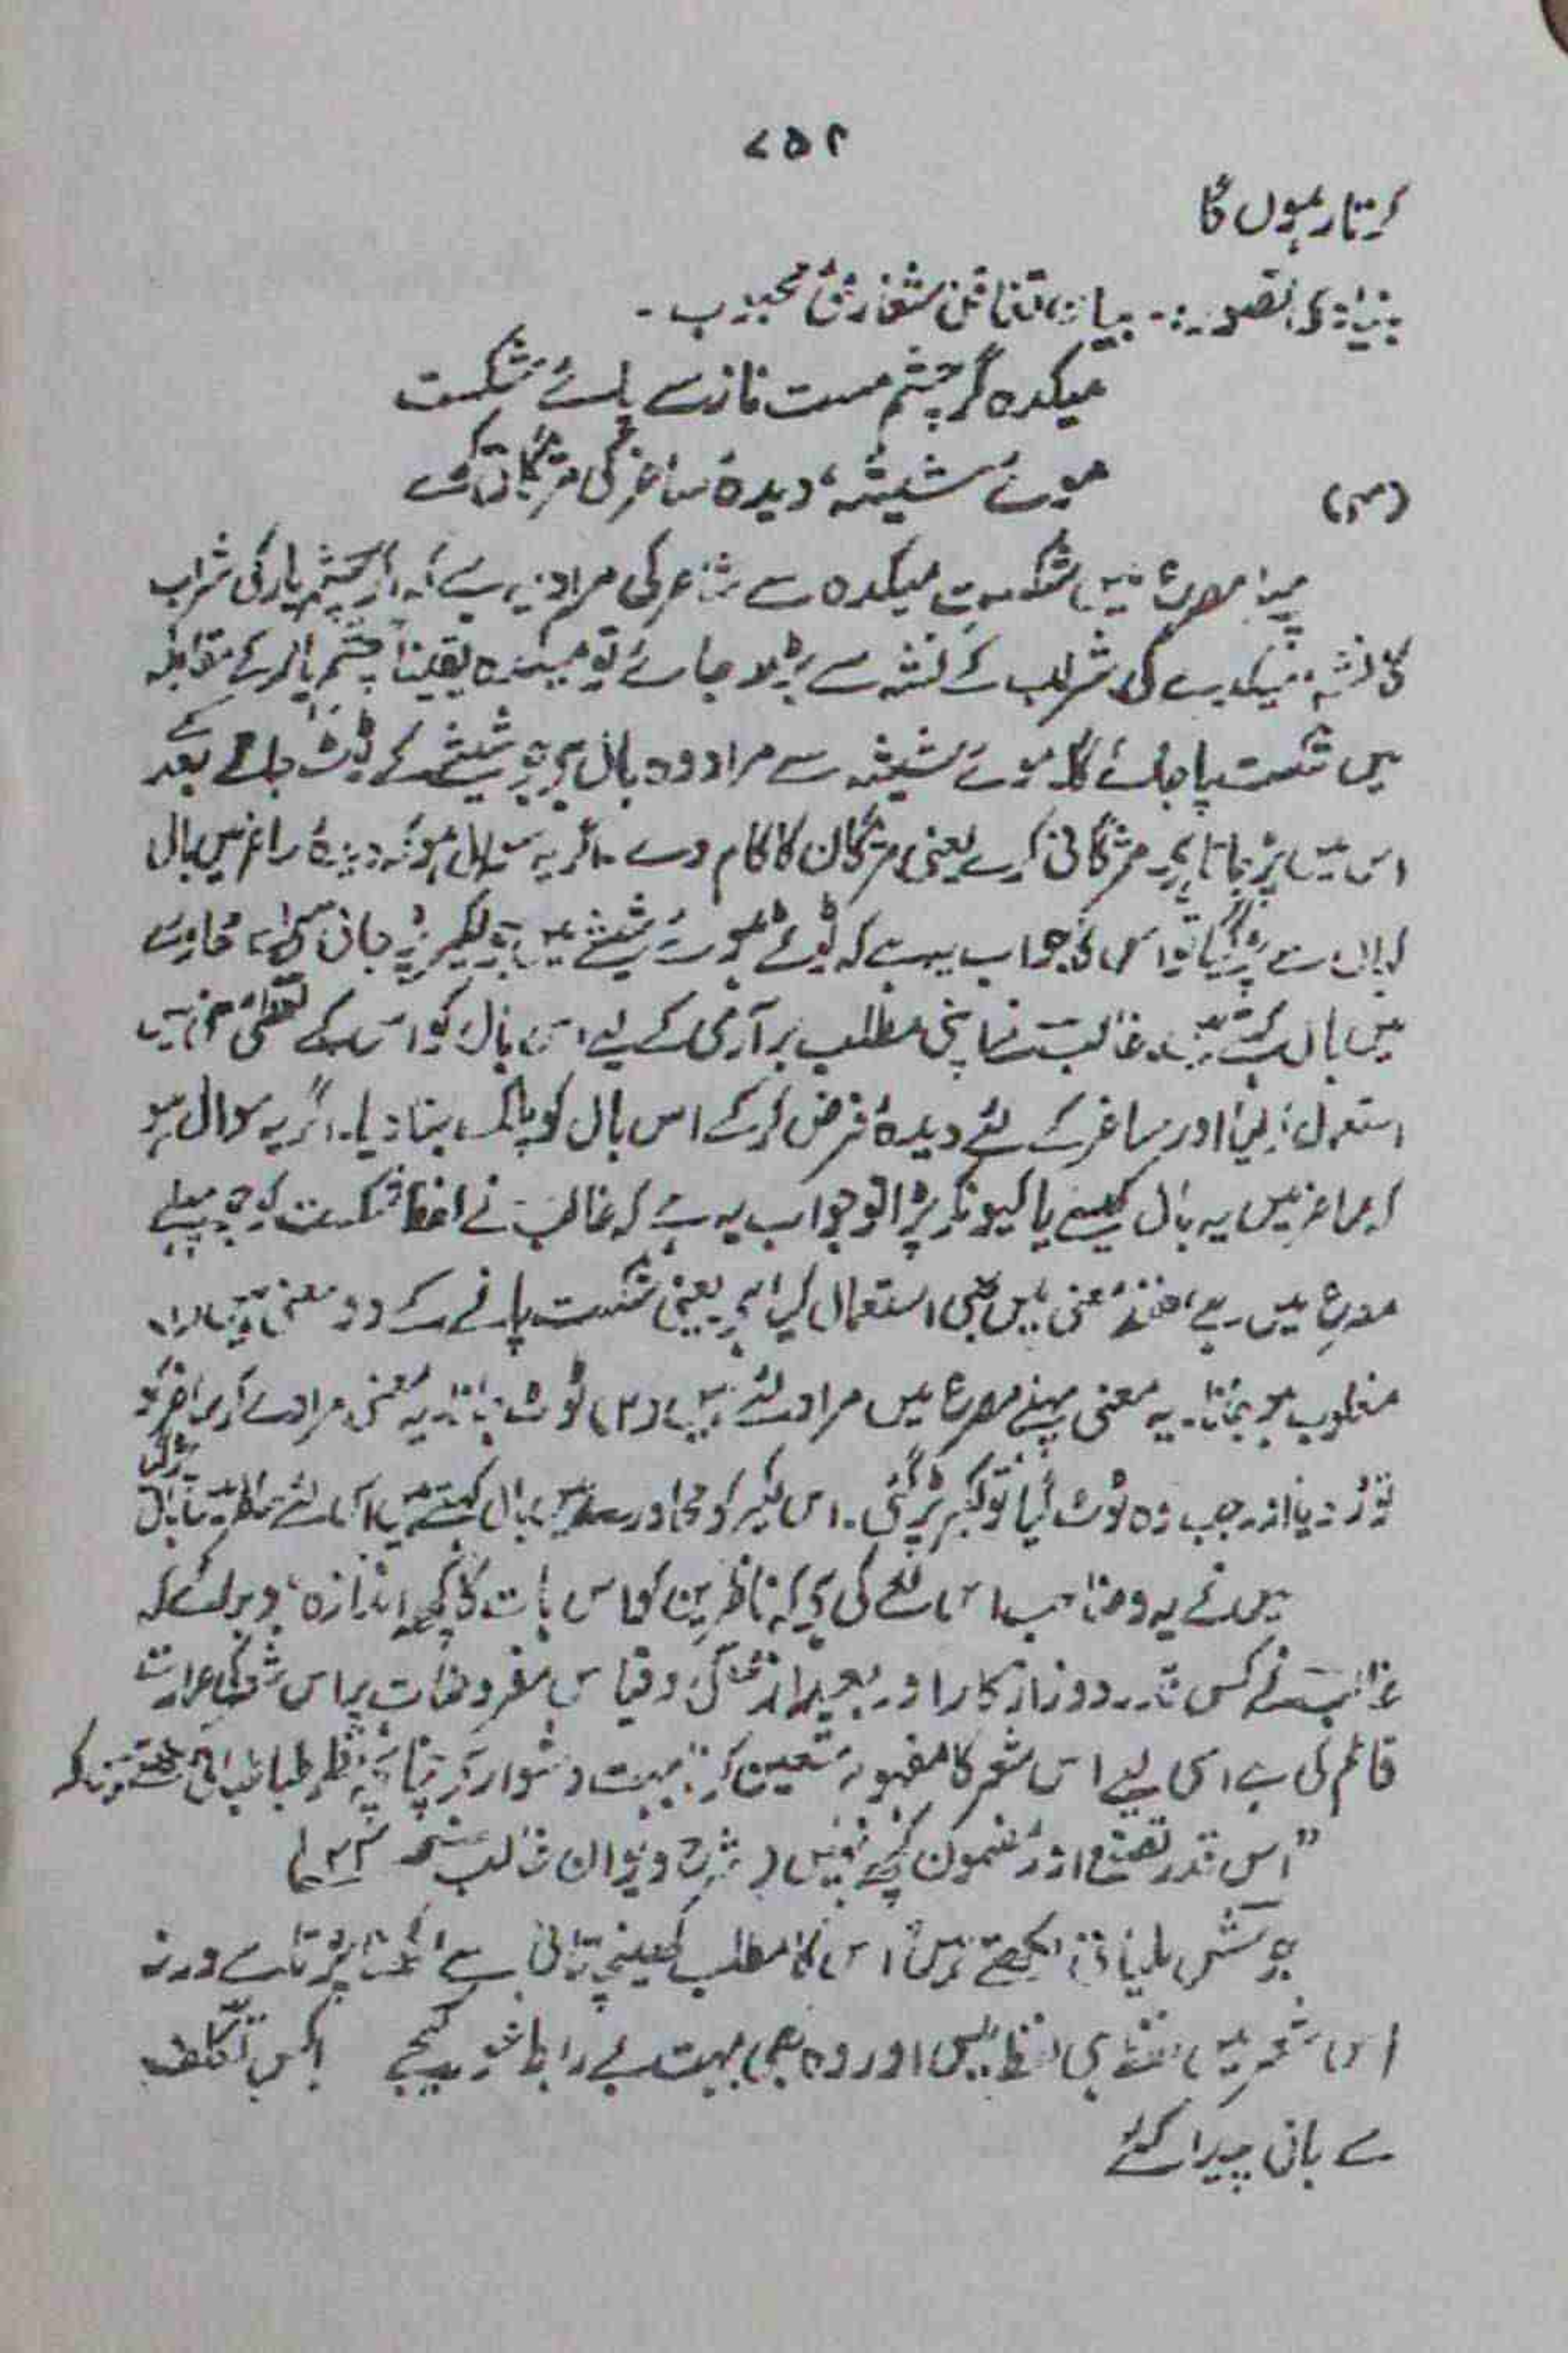 ۷۵۲
کرتا رہوں گا
بنیادی تصور :- بیانِ تغافل شعاریٔ محبوب ۔
میکدہ گر چشم مست ناز سے پائے شکست
موئے شیشہ، دیدۂ ساغر کی مژگانی کرے
(۳)
پہلا مصرع میں شکست میکدہ سے شاعر کی مراد یہ ہے کہ اگر چشم یار کی شراب
کا نشہ میکدے کی شراب کے نشہ سے بڑھ جائے تو میکدہ یقیناً چشم یار کے مقابلہ
میں شکست پا جائے گا۔ موئے شیشہ سے مراد وہ بال ہے جو شیشے کے ٹوٹ جانے کے بعد
اس میں پڑ جاتا ہے۔ مژگانی کرے یعنی مژگان کا کام دے۔ اگر یہ سوال ہو کہ دیدۂ ساغر میں بال
کہاں سے پڑ گیا تو اس کا جواب یہ ہے کہ ٹوٹے ہوئے شیشے میں جو لکیر پڑ جاتی ہے اسے محاورے
میں بال کہتے ہیں۔ غالب نے اپنی مطلب برآری کے لیے اس بال کو اس کے لفظی معنی میں
استعمال کیا اور ساغر کے لئے دیدہ فرض کر کے اس بال کو پلک بنا دیا۔ اگر یہ سوال ہو
کہ ساغر میں یہ بال کیسے یا کیونکر پڑا تو جواب یہ ہے کہ غالب نے لفظ شکست کو جو پہلے
مصرع میں ہے، لفظی معنی میں بھی استعمال کیا ہے یعنی شکست پانے کے دو معنی ہیں (۱)
مغلوب ہو جانا۔ یہ معنی پہلے مصرع میں مراد لئے ہیں (۲) ٹوٹ جانا۔ یہ معنی مراد لے کر ساغر کو
توڑ دیا اور جب وہ ٹوٹ گیا تو لکیر پڑ گئی۔ اس لکیر کو محاورے میں بال کہتے ہیں اس لئے ساغر میں بال پڑ گیا
میں نے یہ وضاحت اس لئے کی ہے کہ ناظرین کو اس بات کا کچھ اندازہ ہو جائے کہ
غالب نے کس قدر دور از کار اور بعید از قیاس مفروضات پر اس شعر کی عمارت
قائم کی ہے اسی لیے اس شعر کا مفہوم متعین کرنا بہت دشوار ہے چنانچہ نظم طباطبائی لکھتے ہیں کہ
"اس قدر تصنع اور مضمون کچھ نہیں (شرح دیوان غالب صفحہ
جوش ملیانی لکھتے ہیں اس کا مطلب کھینچ تانی سے اخذ پڑتا ہے ورنہ
اس شعر میں لفظ ہی لفظ ہیں اور وہ بھی بہت بے رابطہ دیکھیے کس تکلف
سے پیدا کئے